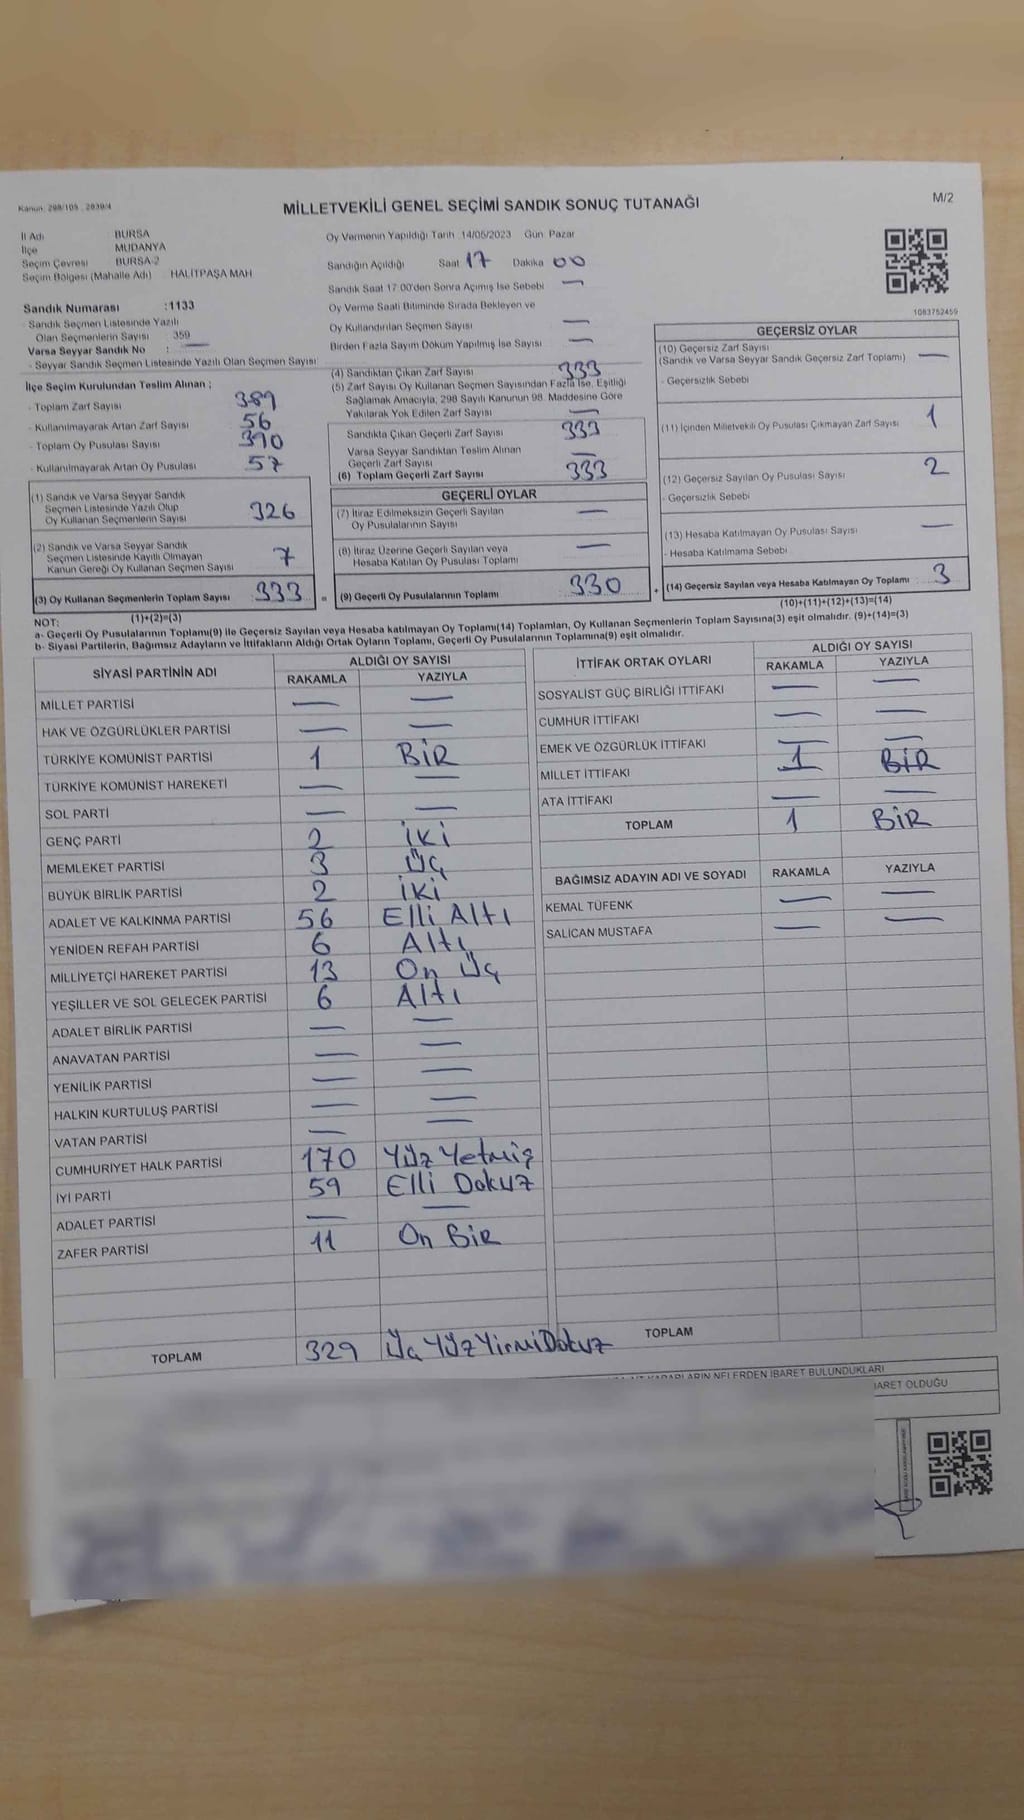 Kanun: 298/105 , 2839/4
MİLLETVEKİLİ GENEL SEÇİMİ SANDIK SONUÇ TUTANAĞI
M/2
İl Adı BURSA
İlçe MUDANYA
Seçim Çevresi BURSA-2
Seçim Bölgesi (Mahalle Adı) HALİTPAŞA MAH
Sandık Numarası :1133
- Sandık Seçmen Listesinde Yazılı
Olan Seçmenlerin Sayısı 359
Varsa Seyyar Sandık No : —
- Seyyar Sandık Seçmen Listesinde Yazılı Olan Seçmen Sayısı
İlçe Seçim Kurulundan Teslim Alınan ;
- Toplam Zarf Sayısı 389
- Kullanılmayarak Artan Zarf Sayısı 56
- Toplam Oy Pusulası Sayısı 390
- Kullanılmayarak Artan Oy Pusulası 57
(1) Sandık ve Varsa Seyyar Sandık
Seçmen Listesinde Yazılı Olup
Oy Kullanan Seçmenlerin Sayısı 326
(2) Sandık ve Varsa Seyyar Sandık
Seçmen Listesinde Kayıtlı Olmayan
Kanun Gereği Oy Kullanan Seçmen Sayısı 7
(3) Oy Kullanan Seçmenlerin Toplam Sayısı 333 =
(1)+(2)=(3)
Oy Vermenin Yapıldığı Tarih :14/05/2023 Gün Pazar
Sandığın Açıldığı Saat 17 Dakika 00
Sandık Saat 17:00'den Sonra Açılmış İse Sebebi —
Oy Verme Saati Bitiminde Sırada Bekleyen ve
Oy Kullandırılan Seçmen Sayısı —
Birden Fazla Sayım Döküm Yapılmış İse Sayısı —
(4) Sandıktan Çıkan Zarf Sayısı 333
(5) Zarf Sayısı Oy Kullanan Seçmen Sayısından Fazla İse, Eşitliği
Sağlamak Amacıyla, 298 Sayılı Kanunun 98. Maddesine Göre
Yakılarak Yok Edilen Zarf Sayısı —
Sandıkta Çıkan Geçerli Zarf Sayısı 333
Varsa Seyyar Sandıktan Teslim Alınan
Geçerli Zarf Sayısı —
(6) Toplam Geçerli Zarf Sayısı 333
GEÇERLİ OYLAR
(7) İtiraz Edilmeksizin Geçerli Sayılan
Oy Pusulalarının Sayısı —
(8) İtiraz Üzerine Geçerli Sayılan veya
Hesaba Katılan Oy Pusulası Toplamı —
(9) Geçerli Oy Pusulalarının Toplamı 330 +
1083752459
GEÇERSİZ OYLAR
(10) Geçersiz Zarf Sayısı
(Sandık ve Varsa Seyyar Sandık Geçersiz Zarf Toplamı) —
- Geçersizlik Sebebi
(11) İçinden Milletvekili Oy Pusulası Çıkmayan Zarf Sayısı 1
(12) Geçersiz Sayılan Oy Pusulası Sayısı 2
- Geçersizlik Sebebi
(13) Hesaba Katılmayan Oy Pusulası Sayısı —
- Hesaba Katılmama Sebebi
(14) Geçersiz Sayılan veya Hesaba Katılmayan Oy Toplamı 3
(10)+(11)+(12)+(13)=(14)
NOT:
a- Geçerli Oy Pusulalarının Toplamı(9) ile Geçersiz Sayılan veya Hesaba katılmayan Oy Toplamı(14) Toplamları, Oy Kullanan Seçmenlerin Toplam Sayısına(3) eşit olmalıdır. (9)+(14)=(3)
b- Siyasi Partilerin, Bağımsız Adayların ve İttifakların Aldığı Oyların Toplamı, Geçerli Oy Pusulalarının Toplamına(9) eşit olmalıdır.
SİYASİ PARTİNİN ADI ALDIĞI OY SAYISI
RAKAMLA YAZIYLA
MİLLET PARTİSİ — —
HAK VE ÖZGÜRLÜKLER PARTİSİ — —
TÜRKİYE KOMÜNİST PARTİSİ 1 BİR
TÜRKİYE KOMÜNİST HAREKETİ — —
SOL PARTİ — —
GENÇ PARTİ 2 İKİ
MEMLEKET PARTİSİ 3 ÜÇ
BÜYÜK BİRLİK PARTİSİ 2 İKİ
ADALET VE KALKINMA PARTİSİ 56 Elli Altı
YENİDEN REFAH PARTİSİ 6 Altı
MİLLİYETÇİ HAREKET PARTİSİ 13 On Üç
YEŞİLLER VE SOL GELECEK PARTİSİ 6 Altı
ADALET BİRLİK PARTİSİ — —
ANAVATAN PARTİSİ — —
YENİLİK PARTİSİ — —
HALKIN KURTULUŞ PARTİSİ — —
VATAN PARTİSİ — —
CUMHURİYET HALK PARTİSİ 170 Yüz Yetmiş
İYİ PARTİ 59 Elli Dokuz
ADALET PARTİSİ — —
ZAFER PARTİSİ 11 On Bir
TOPLAM 329 Üç Yüz Yirmi Dokuz
İTTİFAK ORTAK OYLARI ALDIĞI OY SAYISI
RAKAMLA YAZIYLA
SOSYALİST GÜÇ BİRLİĞİ İTTİFAKI — —
CUMHUR İTTİFAKI — —
EMEK VE ÖZGÜRLÜK İTTİFAKI — —
MİLLET İTTİFAKI 1 BİR
ATA İTTİFAKI — —
TOPLAM 1 BİR
BAĞIMSIZ ADAYIN ADI VE SOYADI RAKAMLA YAZIYLA
KEMAL TÜFENK — —
SALİCAN MUSTAFA — —
TOPLAM
KARARLARIN NELERDEN İBARET BULUNDUKLARI
İBARET OLDUĞU